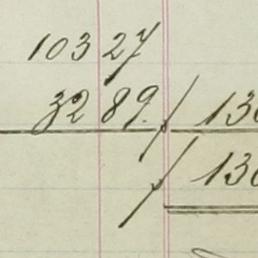 103 27
32 89. / 136
/ 136